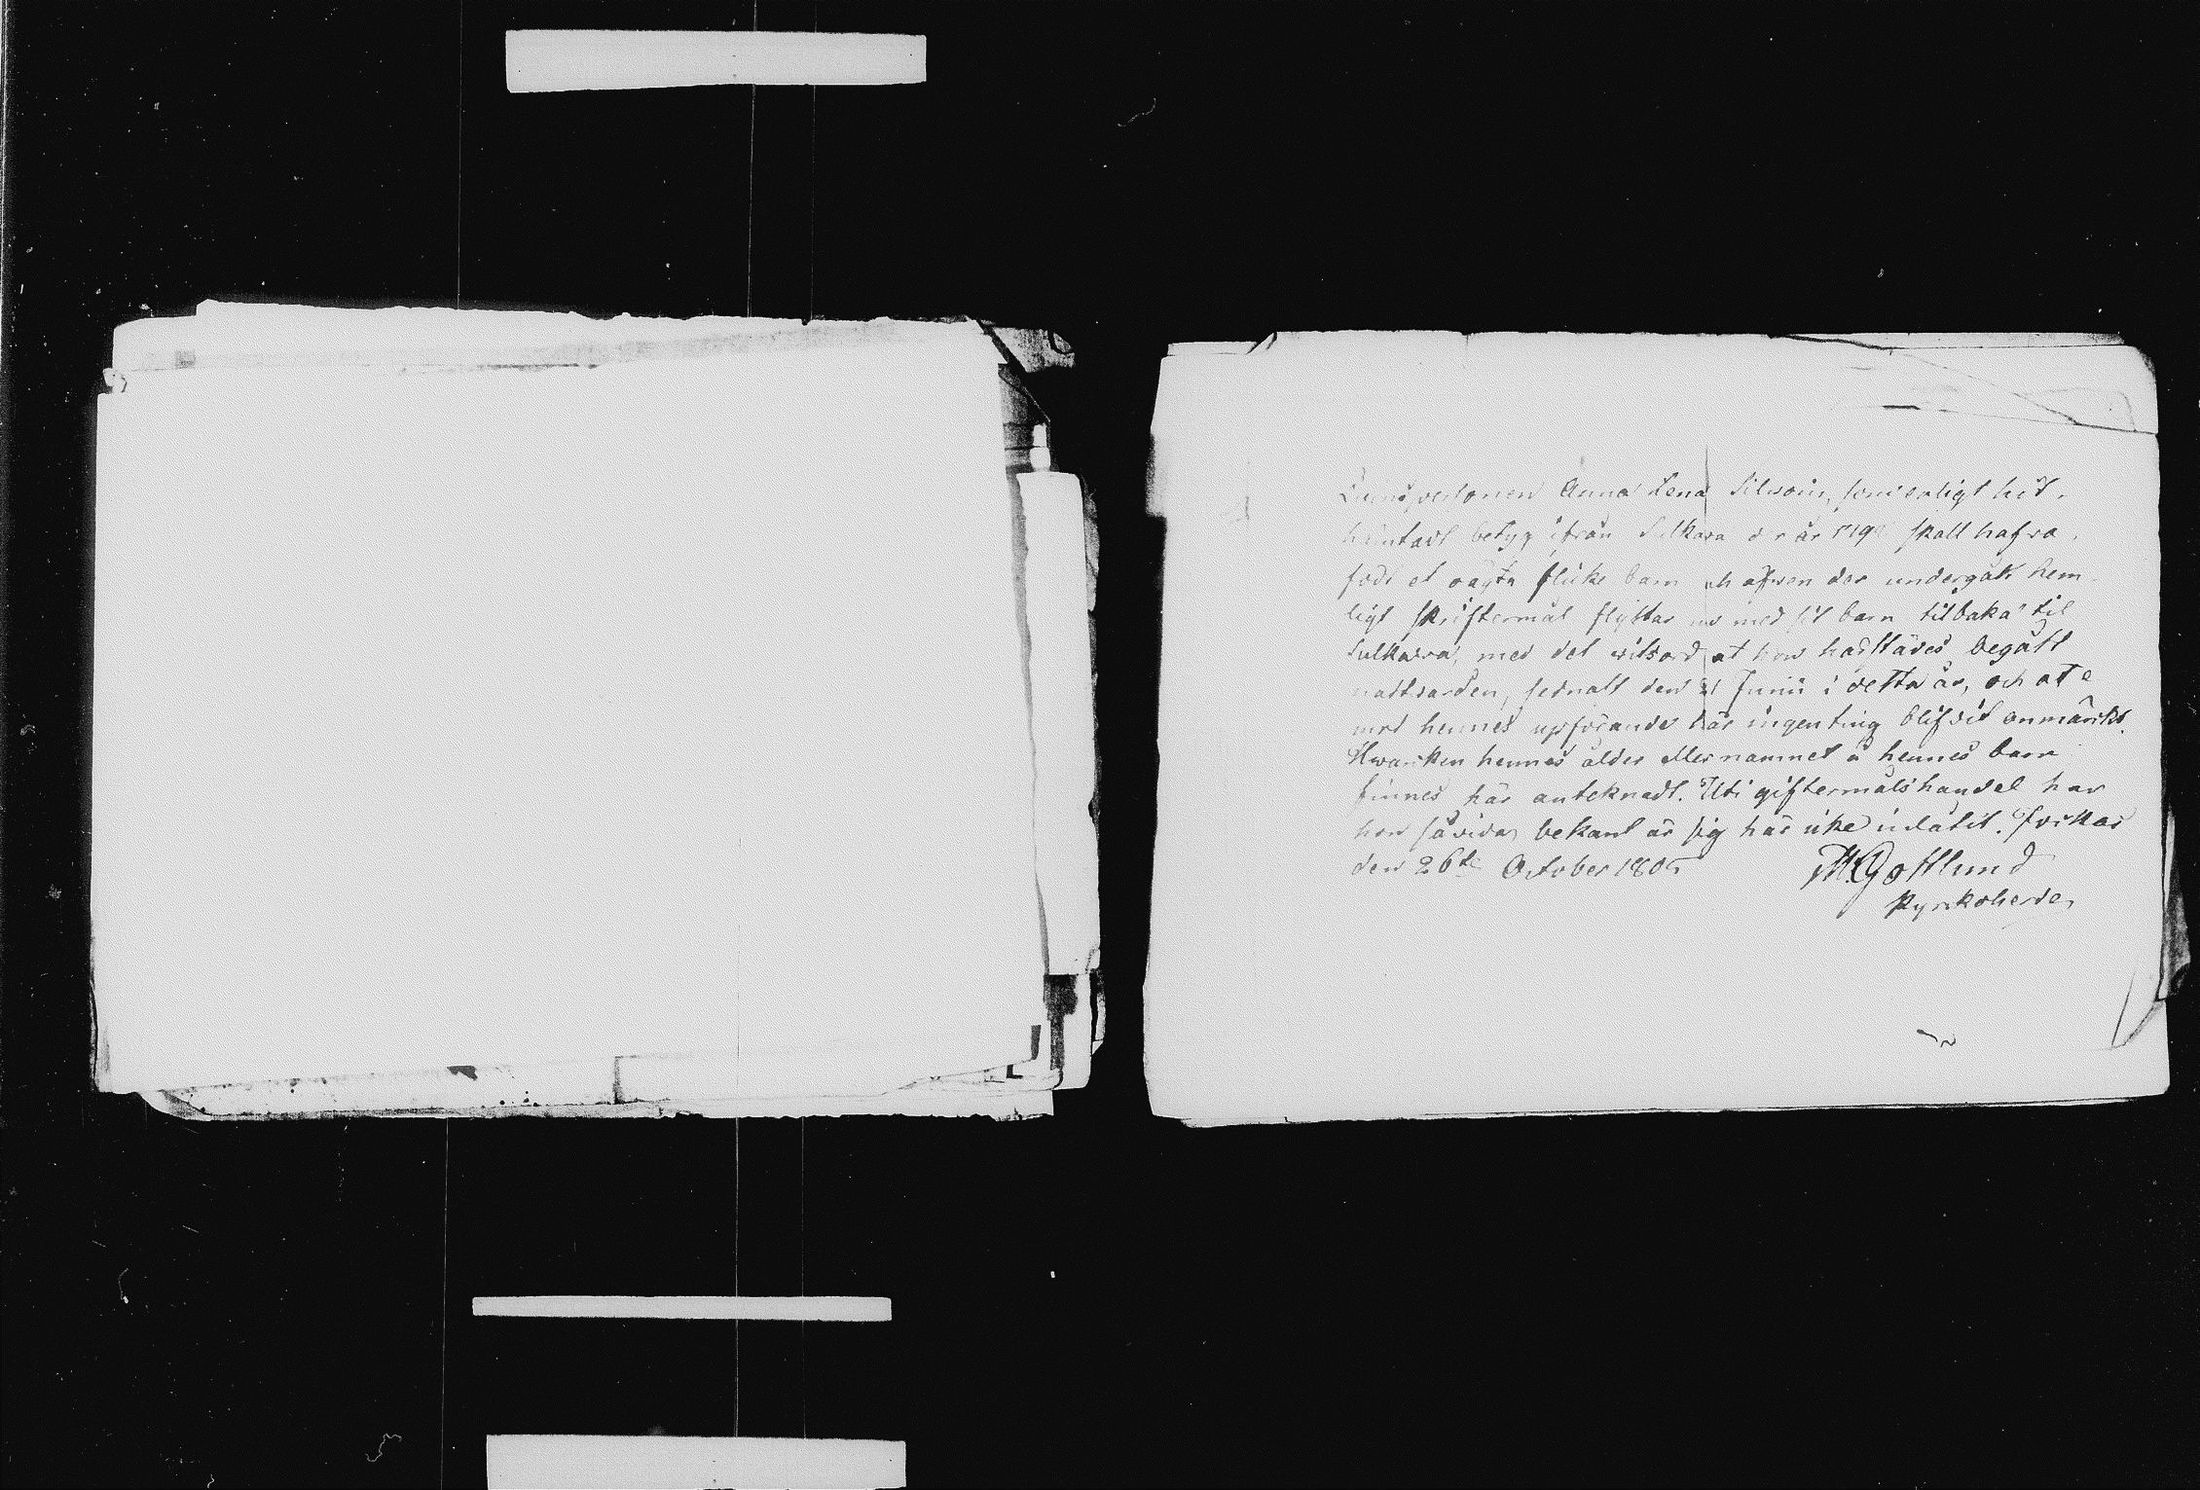 Qvinspersonen Anna Lena Silvoin, som enligt hit-
hämtadt betyg ifrån Sulkava der år 179 skall hafva
födt et oägta flicke barn och äfven der undergått hem-
ligt skriftermål flyttar nu med sit barn tilbaka til
Sulkava, med det vitsord at hon härstädes begått
nattvarden, sednast den 21 Junii i detta år, och at e
mot hennes upförande här ingenting blifvit anmärkt.
Hwarken hennes ålder eller namnet å hennes barn
finnes här anteknadt. Uti giftermålshandel har
hon såvida bekant är sig här icke inlåtit. Jockas
den 26te October 1805
M. Gottlund
Kyrkoherde